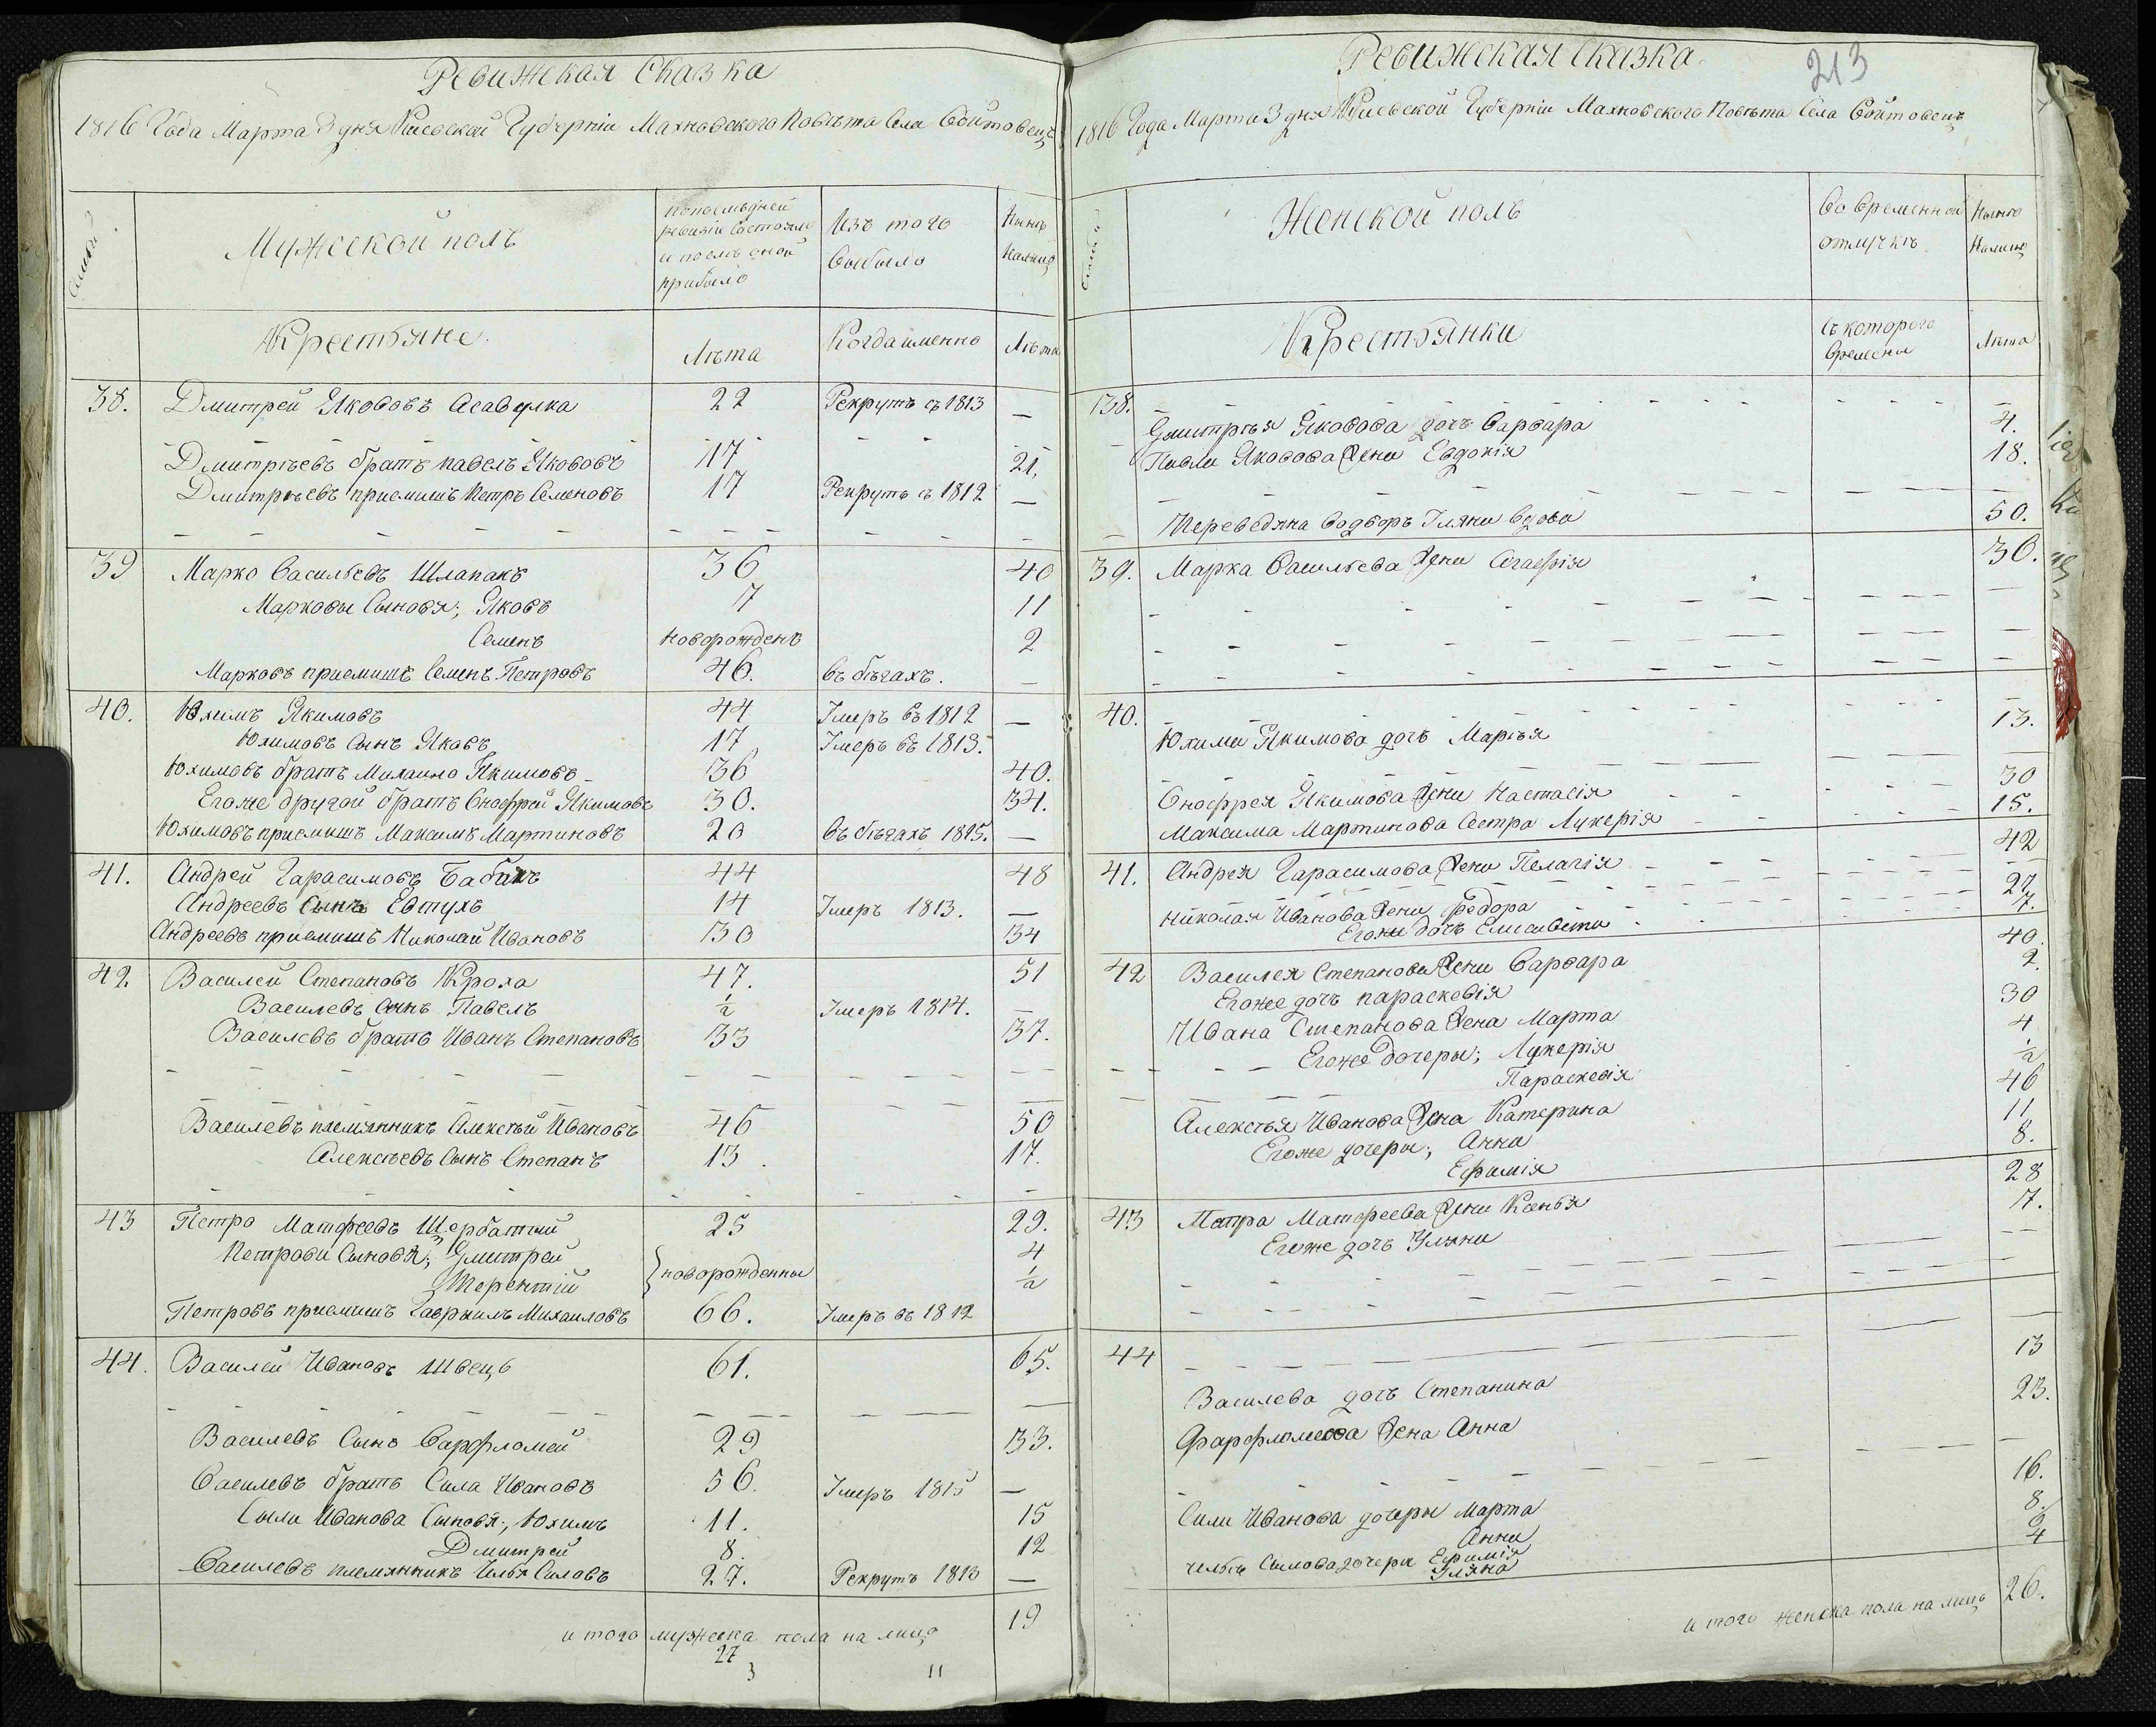 Ревижская Сказка
1816 Года Марта 3 дня Киевской Губерніи Махновского Повѣта Села Войтовецъ
Мужеской полъ
по последней
ревизіи состояло
и после оной
прибыло
Изъ того
выбыло
Нынѣ
Налицо
Крестьяне.
Лѣта
Когда именно
Лѣта
38. Дмитрей Якововъ Асавулка 22 Рекрутъ съ 1813 —
Дмитрѣевъ братъ павелъ Якововъ 17 21.
Дмитрѣевъ приемишъ Петръ Семеновъ 17 Рекрутъ съ 1812 —
39 Марко Васильевъ Шлапакъ 36 40
Марковы Сыновя; Яковъ 7 11
Семенъ новорожденъ 2
Марковъ приемишъ Семенъ Петровъ 46. въ бѣгахъ. —
40. Юхимъ Якимовъ 44 Умеръ въ 1812 —
Юхимовъ Сынъ Яковъ 17 Умеръ въ 1813.
Юхимовъ братъ Михаило Якимовъ 36 40.
Егоже другой братъ Онофрей Якимовъ 30. 34.
Юхимовъ приемишъ Максимъ Мартиновъ 20 въ бѣгахъ 1815. —
41. Андрей Гарасимовъ Бабакъ 44 48
Андреевъ Сынъ Евтухъ 14 Умеръ 1813. —
Андреевъ приемишъ Николай Ивановъ 30 34
42. Василей Степановъ Кроха 47. 51
Василевъ Сынъ Павелъ ½ Умеръ 1814. —
Василевъ братъ Иванъ Степановъ 33 37.
Василевъ племянникъ Алексѣй Ивановъ 46 50
Алексѣевъ Сынъ Степанъ 13. 17.
43 Петро Матфеевъ Щербатый 25 29.
Петрови Сыновя; Дмитрей 4
Терентій новорожденны ½
Петровъ приемишъ Гаврыилъ Михаиловъ 66. Умеръ въ 1812
44. Василей Ивановъ Швецъ 61. 65.
Василевъ Сынъ Варфломей 29 33.
Василевъ братъ Сила Ивановъ 56. Умеръ 1815 —
Сыли Иванова Сыновя; Юхимъ 11. 15
Дмитрей 8. 12
Василевъ племянникъ Илья Силовъ 27. Рекрутъ 1813 —
и того мужеска пола на лицо 19
27
3 11
Ревижская Сказка.
213
1816 Года Марта 3 дня Киевской Губерніи Махновского Повѣта Села Войтовецъ
Женской полъ
Во Временной
отлучкѣ
Нынѣ
Налицо
Крестьянки
Съ которого
Времени
Лѣта
38.
Дмитрѣя Яковова дочъ Варвара 4.
Павла Яковова жена Евдокія 18.
Переведяна водворъ Уляна вдова 50.
39. Марка Васильева жена Агафія 30.
40.
Юхима Якимова дочъ Марѣя 13.
Онофрея Якимова жена Настасія 30
Максима Мартинова Сестра Лукерія 15.
41. Андрея Гарасимова жена Пелагія 42
Николая Иванова жена Федора 27
Егоже дочъ Елисавета 7.
42 Василея Степанова жена Варвара 40.
Егоже дочъ параскевія 2.
Ивана Степанова жена Марта 30
Егоже дочеры; Лукерія 4
Параскевія ½
Алексѣя Иванова жена Катерина 46
Егоже дочеры; Анна 11
Ефимія 8.
43 Петра Матфеева жена Ксенья 28
Егоже дочъ Уляна 7.
44
Василева дочъ Степанина 13
Фарфломеова жена Анна 23.
Сили Иванова дочери Марта 16.
Анна 8.
Ильи Силова дочери Ефимія 6
Уляна 4
и того женска пола на лицѣ 26.